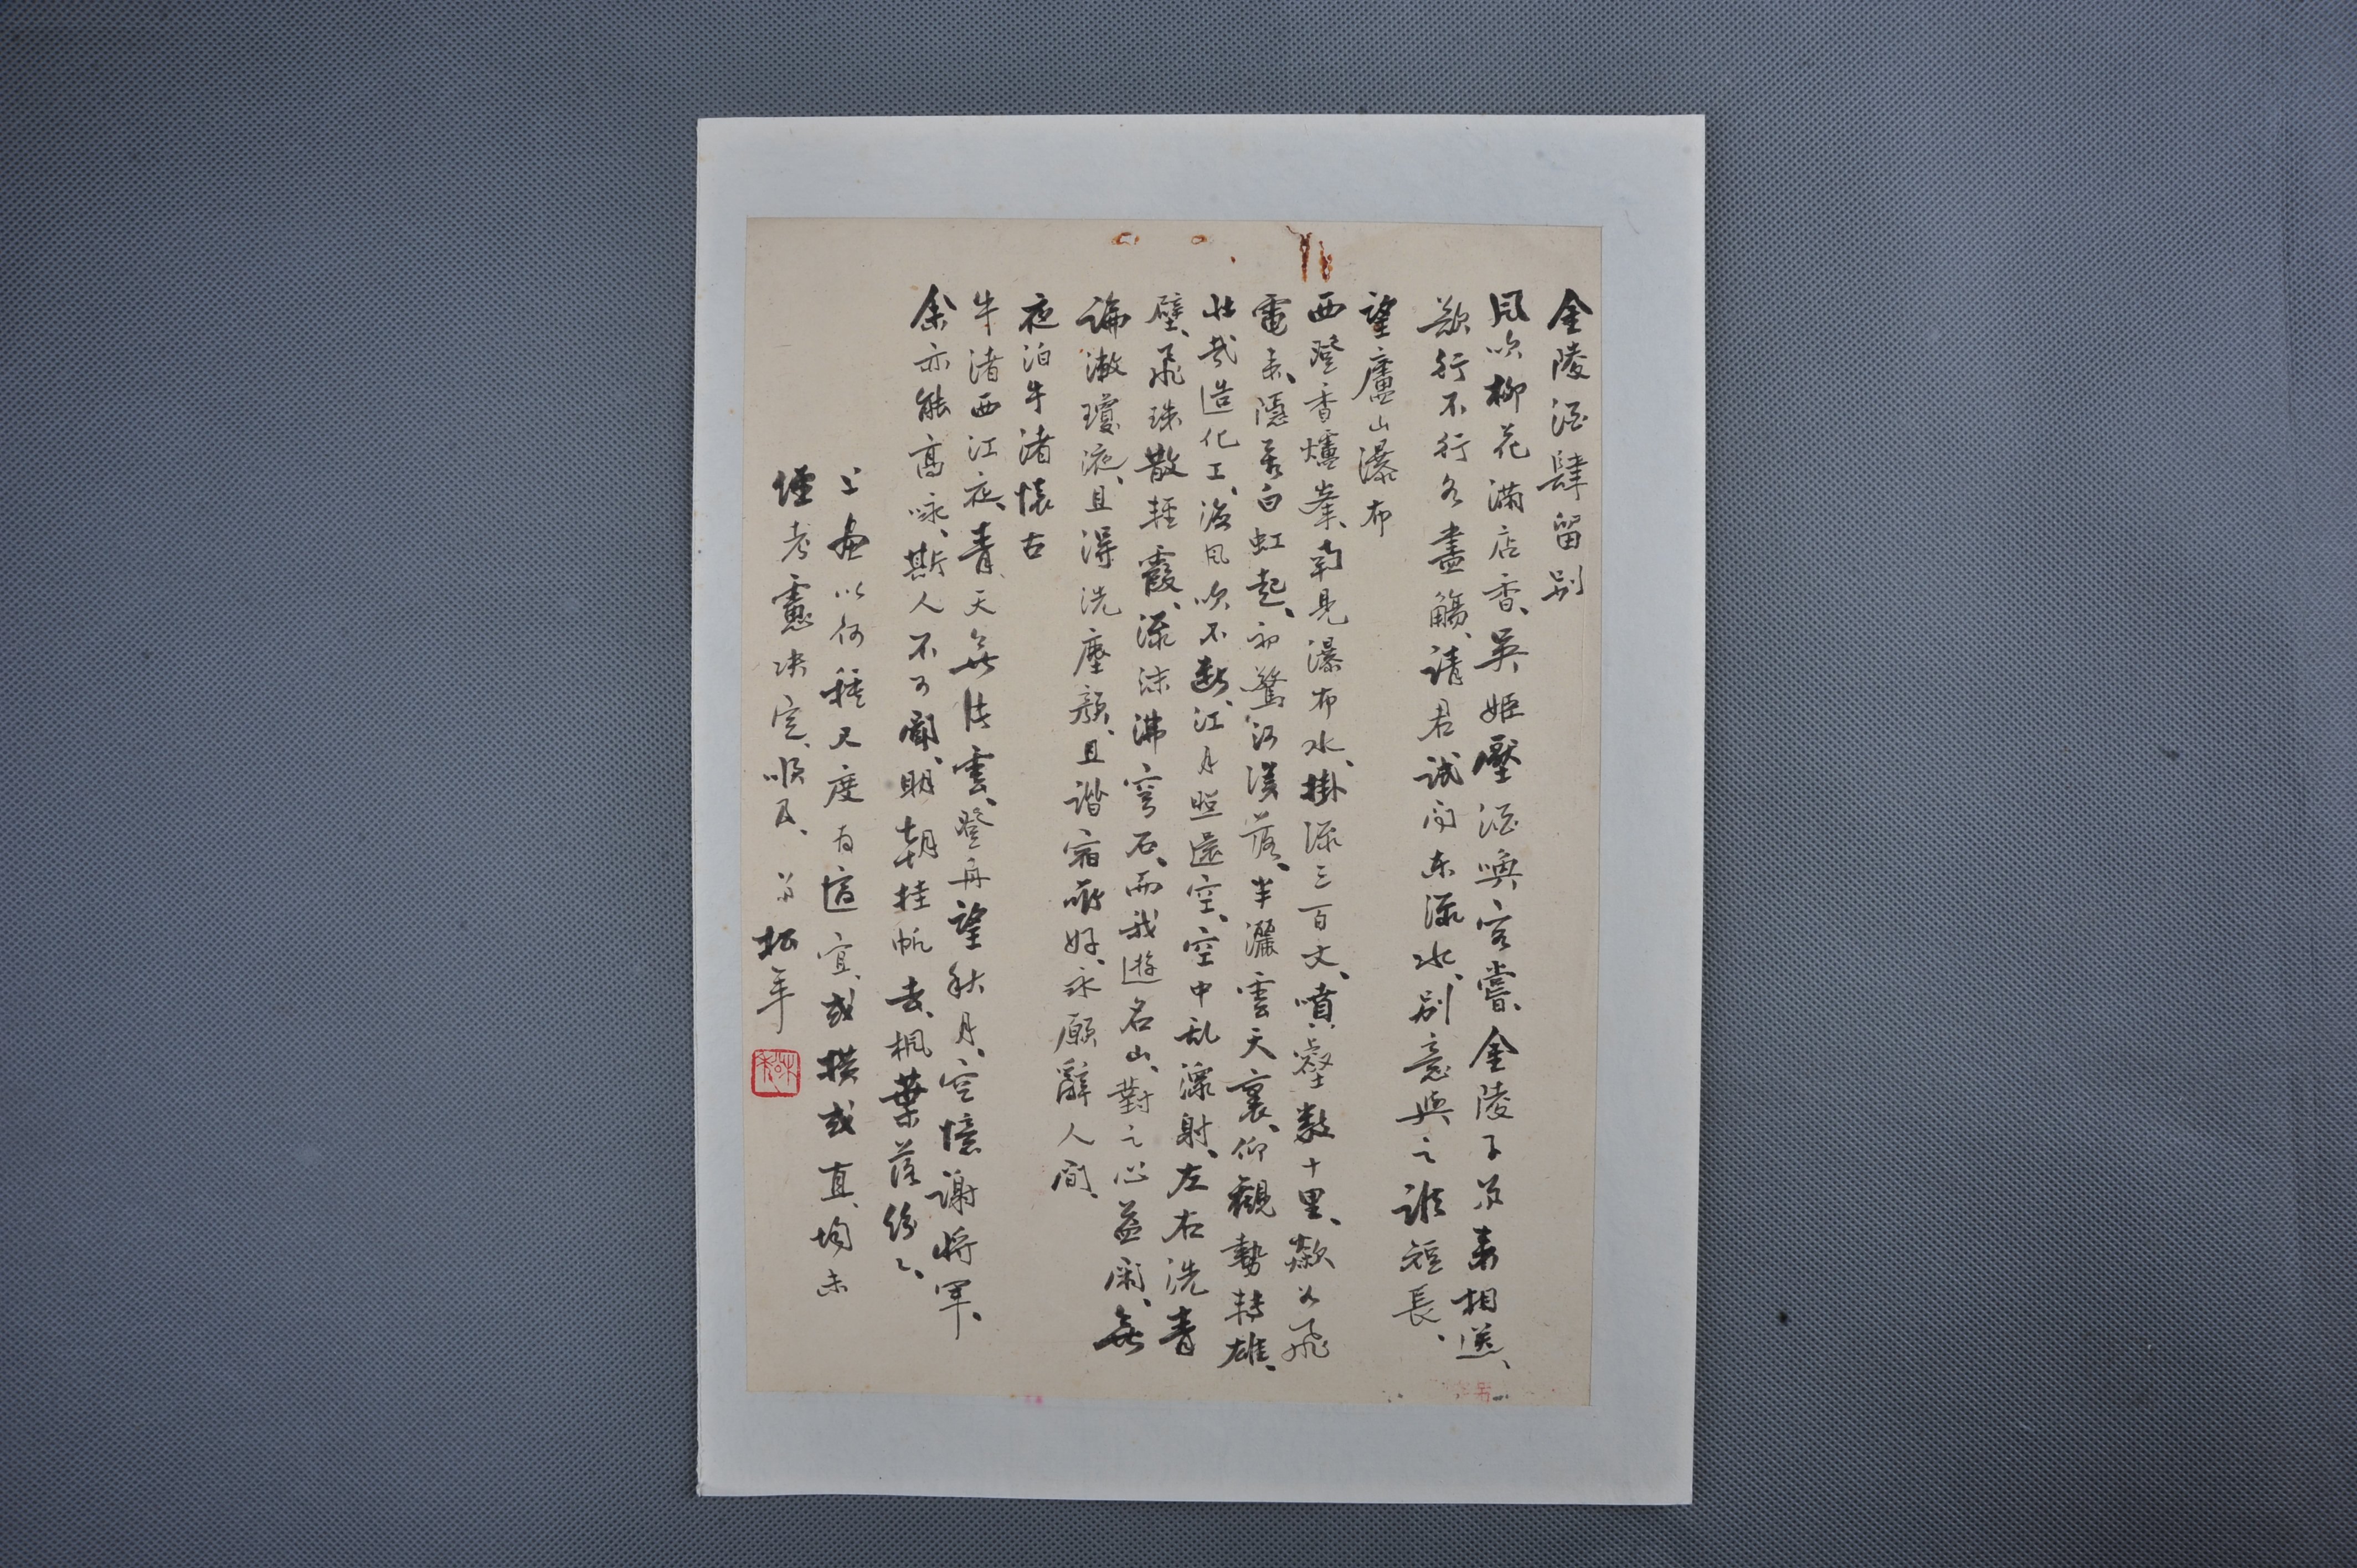 金陵酒肆留別
風吹柳花滿店香、吳姬壓酒喚客嘗、金陵子弟來相送、
欲行不行各盡觴、請君試問東流水、別意與之誰短長、
望廬山瀑布
西登香爐峯、南見瀑布水、掛流三百丈、噴壑數十里、歘如飛
電來、隱若白虹起、初驚河漢落、半灑雲天裏、仰觀勢轉雄、
壯哉造化工、海風吹不斷、江月照還空、空中亂潈射、左右洗青
壁、飛珠散輕霞、流沫沸穹石、而我遊名山、對之心益閑、無
論漱瓊液、且得洗塵顏、且諧宿所好、永願辭人間、
夜泊牛渚懷古
牛渚西江夜、青天無片雲、登舟望秋月、空憶謝將軍、
余亦能高咏、斯人不可聞、明朝挂帆去、楓葉落紛々、
上畫以何種尺度為適宜、或橫或直、均未
經考慮決定、順及、弟 松年